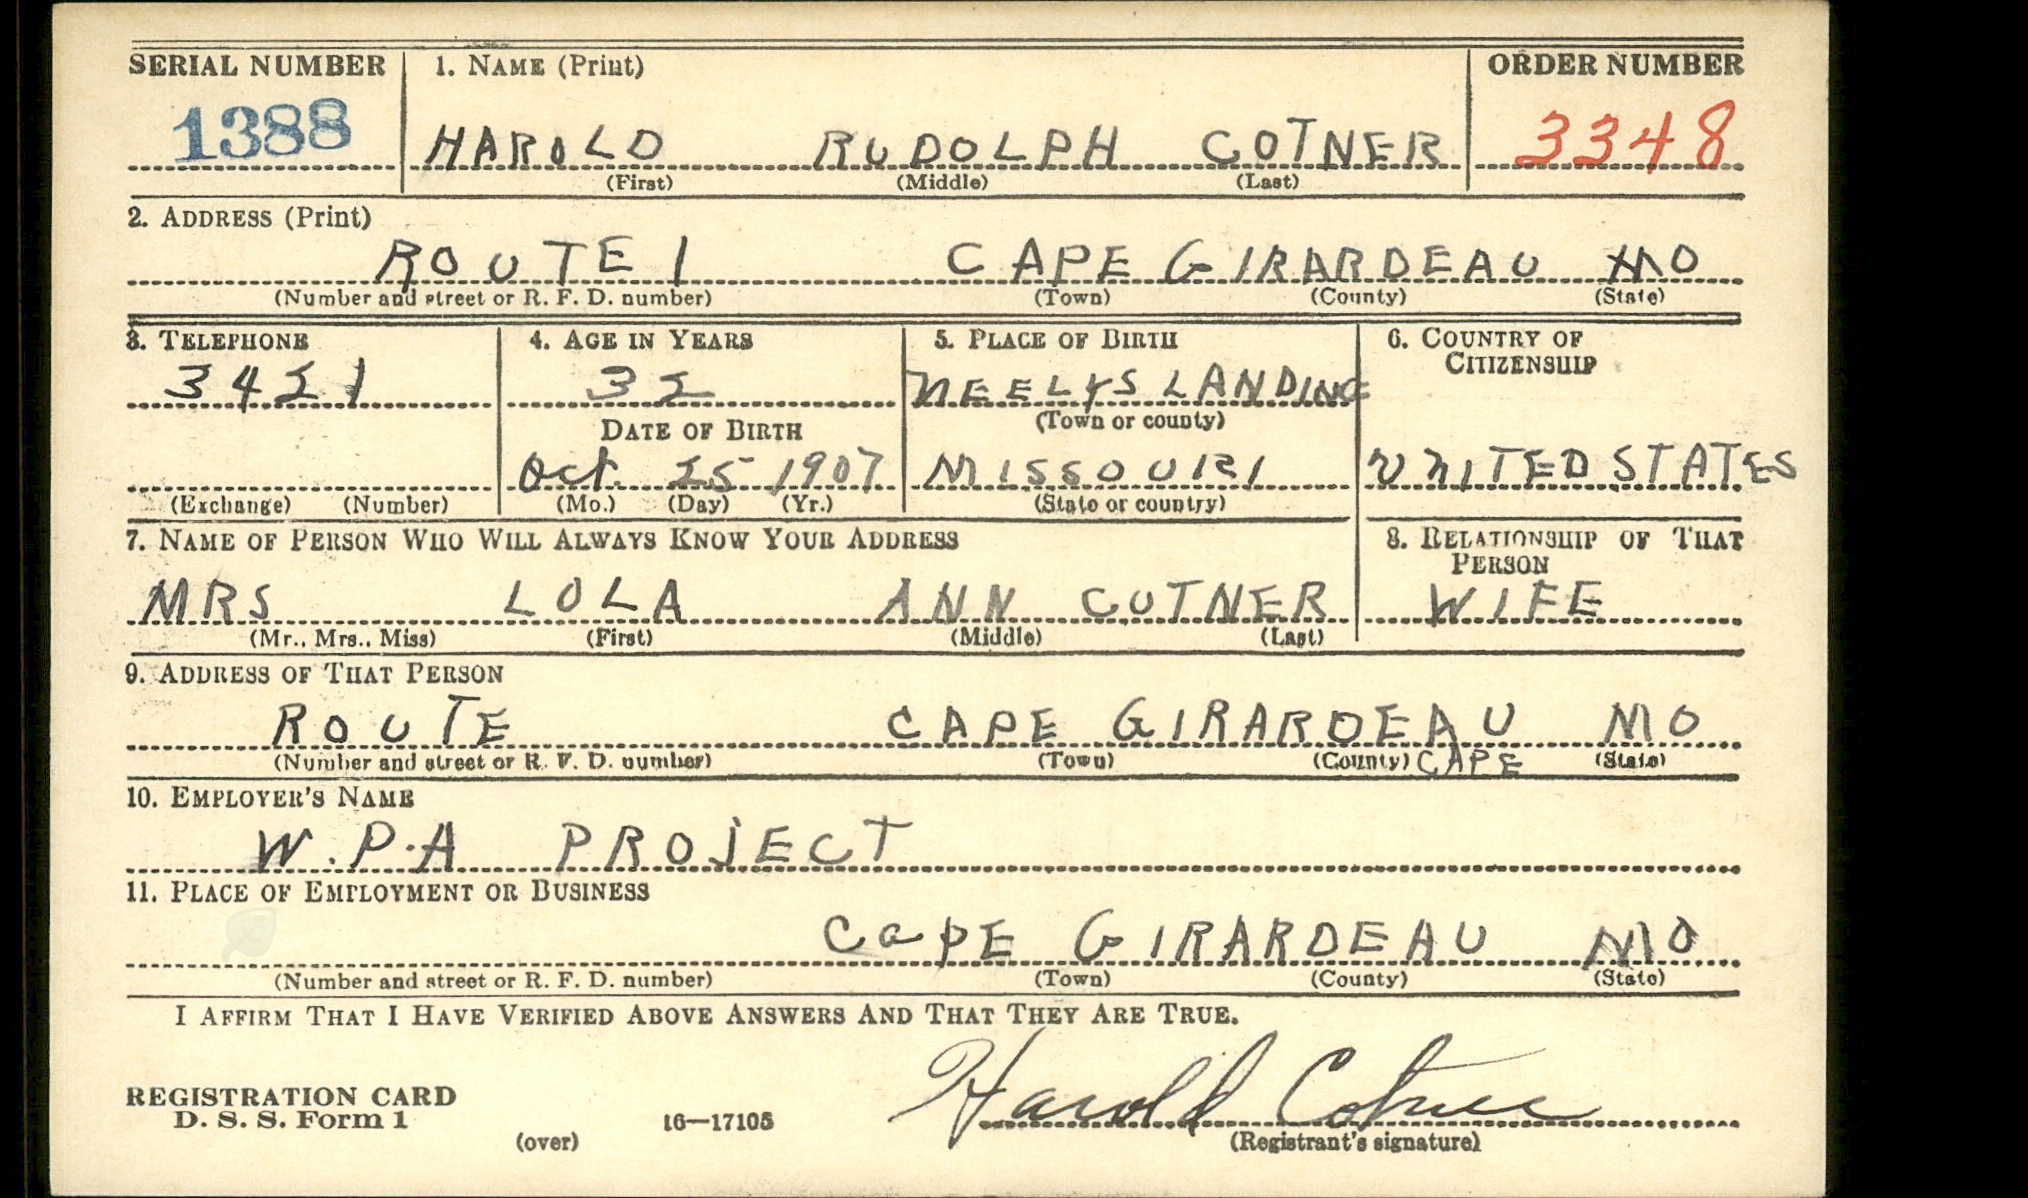 SERIAL NUMBER 1. NAME (Print) ORDER NUMBER
1388 HAROLD RUDOLPH COTNER 3348
(First) (Middle) (Last)
2. ADDRESS (Print)
ROUTE 1 CAPE GIRARDEAU MO
(Number and street or R. F. D. number) (Town) (County) (State)
3. TELEPHONE 4. AGE IN YEARS 5. PLACE OF BIRTH 6. COUNTRY OF
CITIZENSHIP
3421 32 NEELYS LANDING
(Town or county)
DATE OF BIRTH
Oct. 25 1907 MISSOURI UNITED STATES
(Exchange) (Number) (Mo.) (Day) (Yr.) (State or country)
7. NAME OF PERSON WHO WILL ALWAYS KNOW YOUR ADDRESS 8. RELATIONSHIP OF THAT
PERSON
MRS LOLA ANN COTNER WIFE
(Mr., Mrs., Miss) (First) (Middle) (Last)
9. ADDRESS OF THAT PERSON
ROUTE CAPE GIRARDEAU MO
(Number and street or R. F. D. number) (Town) (County) CAPE (State)
10. EMPLOYER'S NAME
W.P.A PROJECT
11. PLACE OF EMPLOYMENT OR BUSINESS
CaPE GIRARDEAU MO
(Number and street or R. F. D. number) (Town) (County) (State)
I AFFIRM THAT I HAVE VERIFIED ABOVE ANSWERS AND THAT THEY ARE TRUE.
REGISTRATION CARD
D. S. S. Form 1 16—17105 Harold Cotner
(over) (Registrant's signature)